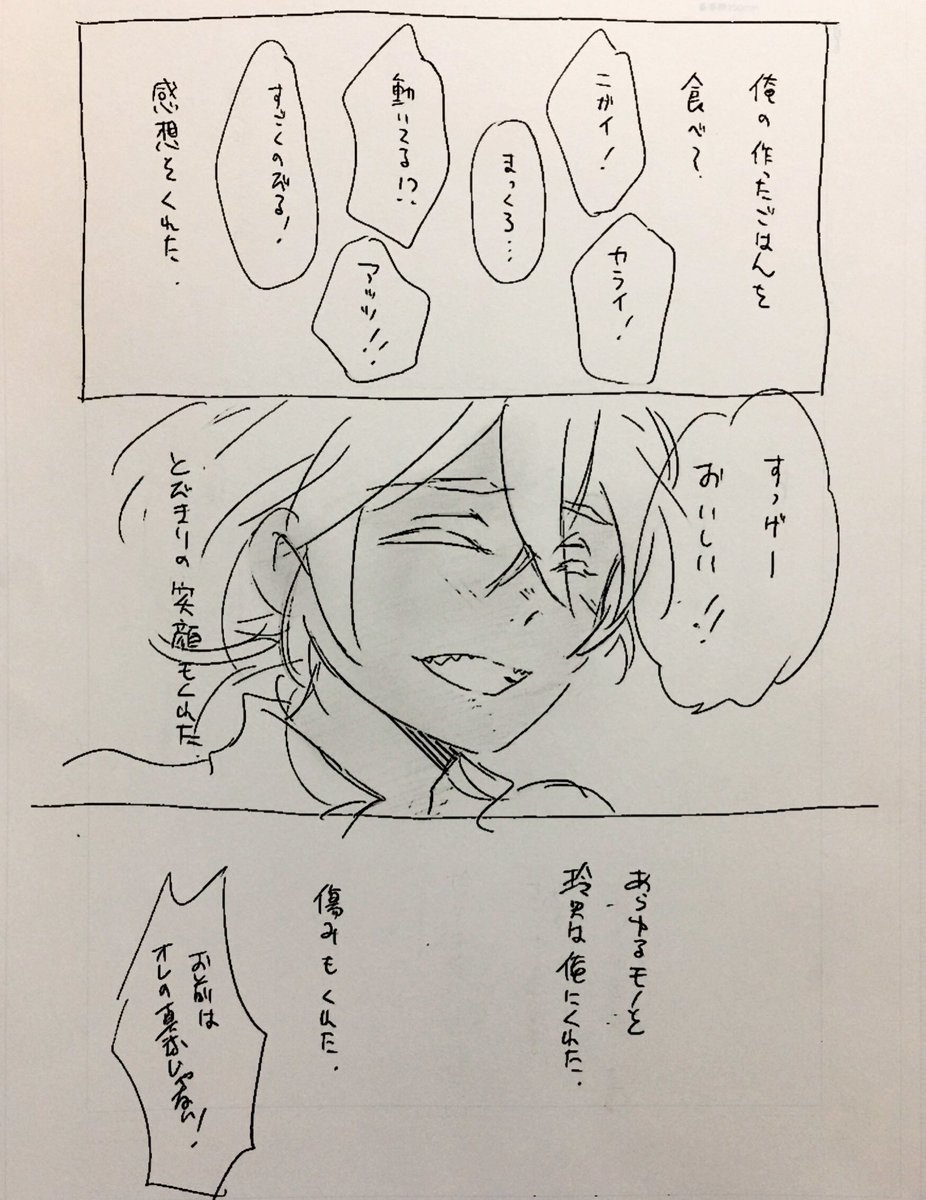 俺の作ったごはんを
食べて
こがイ!
カライ!
まっくろ…
動いてる!?
アッツ!!
すごくのびる!
感想をくれた.
すっげー
おいしい!!
とびきりの笑顔もくれた.
あらゆるモノを
玲央は俺にくれた.
傷みもくれた.
お前は
オレの真弥じゃない!